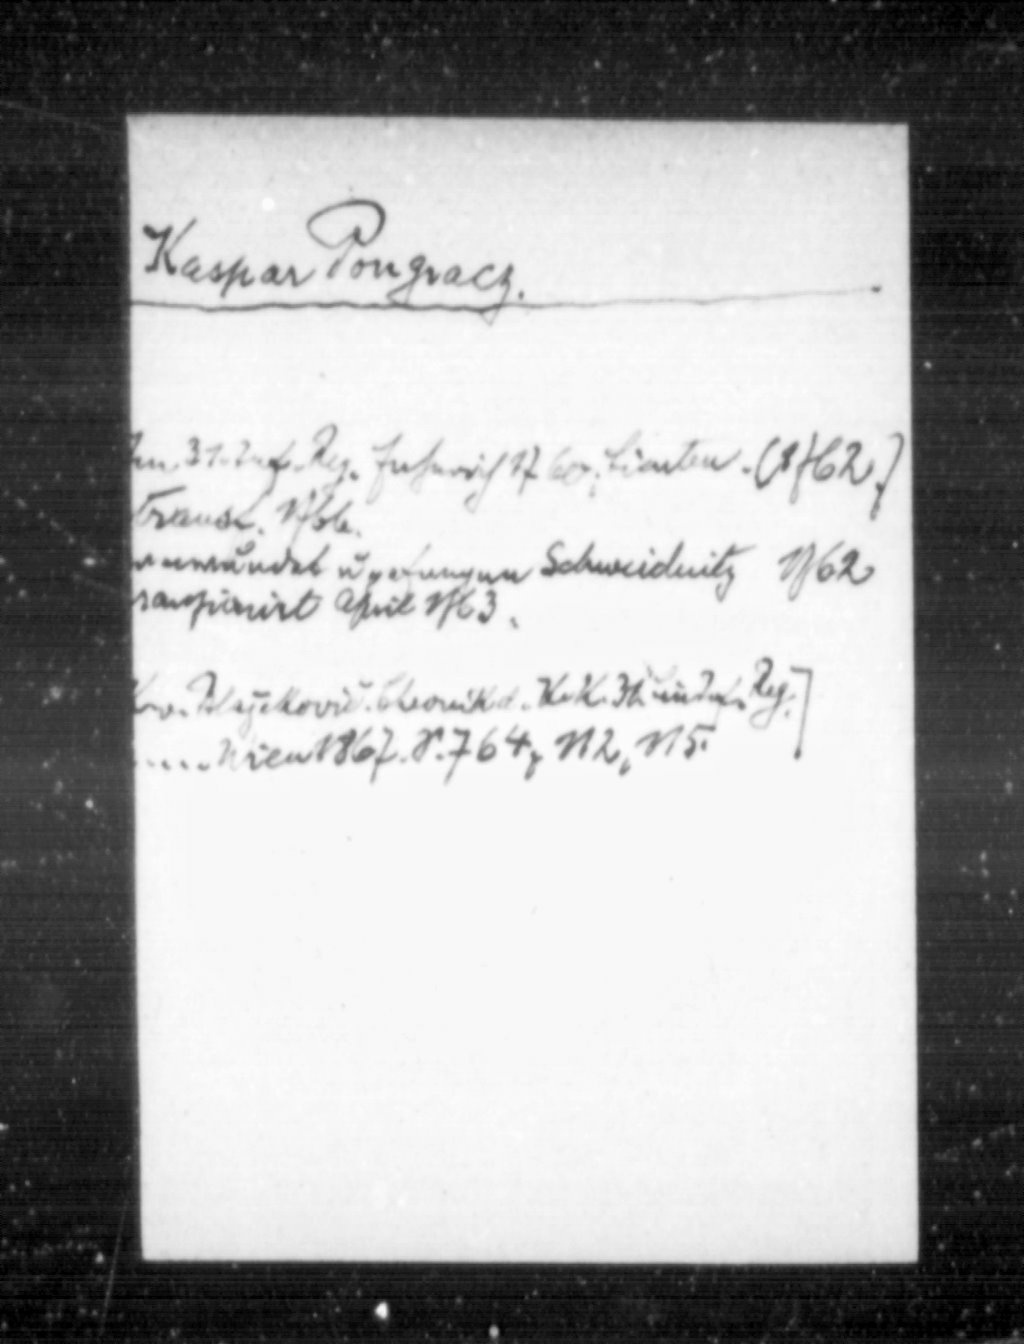 Kaspar Pongracz.
Im 31. Inf. Reg. Fähnrich 1760, Lieuten. (1762.)
Transf. 1756.
verwundet u gefangen Schweidnitz 1762
ranzionirt April 1763.
v. Blažeković. Chronik d. K. K. 31. Lin Inf. Reg.]
.... Wien 1867. S. 764, 112, 115.